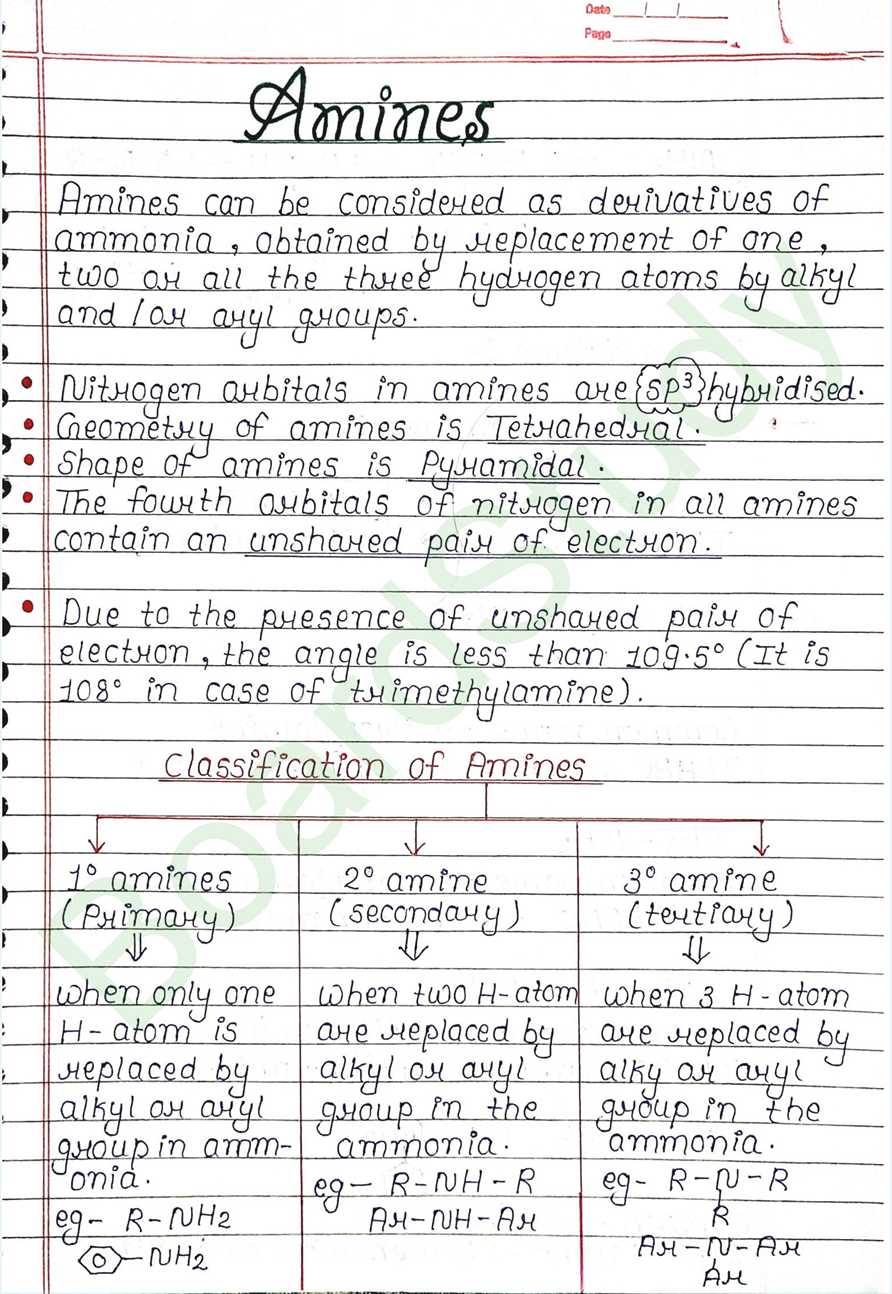 Date / /
Page
Amines
Amines can be considered as derivatives of
ammonia, obtained by replacement of one,
two or all the three hydrogen atoms by alkyl
and / or aryl groups.
• Nitrogen orbitals in amines are {sp³} hybridised.
• Geometry of amines is Tetrahedral.
• Shape of amines is Pyramidal.
• The fourth orbitals of nitrogen in all amines
contain an unshared pair of electron.
• Due to the presence of unshared pair of
electron, the angle is less than 109.5° (It is
108° in case of trimethylamine).
Classification of Amines
1° amines
(Primary)
⇓
when only one
H-atom is
replaced by
alkyl or aryl
group in amm-
onia.
eg- R-NH2
-NH2
2° amine
(secondary)
⇓
when two H-atom
are replaced by
alkyl or aryl
group in the
ammonia.
eg- R-NH-R
Ar-NH-Ar
3° amine
(tertiary)
⇓
when 3 H-atom
are replaced by
alky or aryl
group in the
ammonia.
eg- R-N-R
R
Ar-N-Ar
Ar
BoardStudy